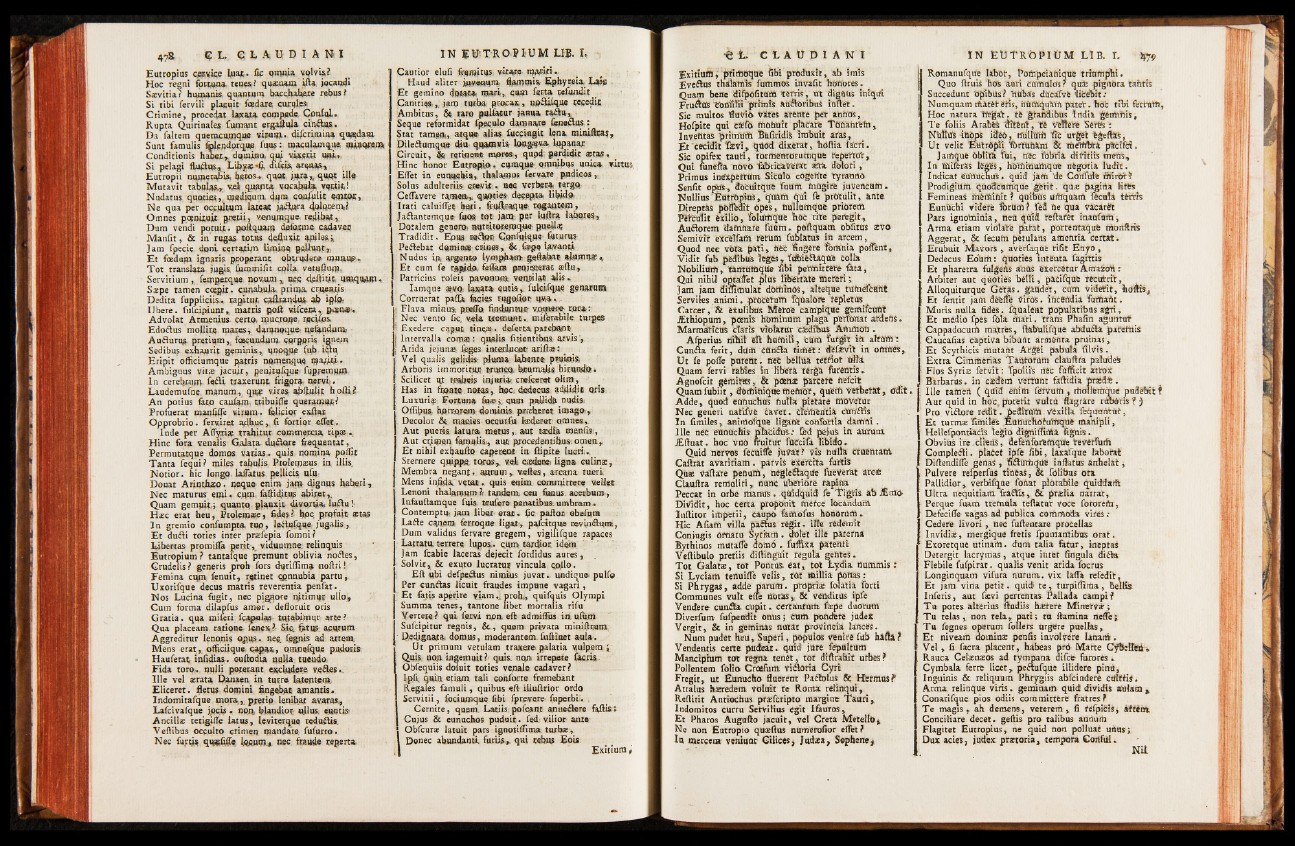 478 CL. CLAUDIANI
Eutropius cervice luat. sic omnia volvis?
Hoc regni fortuna tenes? quænam ista jocandi
Sævitia? humanis quantum bacchabere rebus?
Si tibi servili placuit fœdare curules
Crimine, procedat laxata compede Consul.
Rupta Quirinales sumant ergastula cinctus.
Da saltem quemcumque virum. discrimina quædam
Sunt famulis splendorque suus: maculamque minorem
Conditionis habet, domino qui vixerit uni.
Si pelagi fluctus, Libyæ si discis arenas,
Eutropii numerabis heros. quot jura, quot ille
Mutavit tabulas, vel quanta vocabula vertit!
Nudatus quoties, medicum dum consulit emtor,
Ne qua per occultum lateat jactura dolorem?
Omnes pœnituit pretii, venumque redibat,
Dum vendi potuit. postquam deforme cadaver
Mansit, & in rugas totus defluxit aniles;
Jam specie doni certatim limine pellunt,
Et fœdum ignaris properant obtrudere munus.
Tot translata jugis summisit colla vetustum
Servitium, semperque novum, nec destitit umquam.
Sæpe tamen cœpit. cunabula prima cruentis
Dedita suppliciis. rapitur castrandus ab ipso
Ubere. suscipiunt, matris post viscera, pœnæ.
Advolat Armenius certo mucrone recisos
Edoctus mollire mares, damnoque nefandum
Aucturus pretium, fœcundum corporis ignem
Sedibus exhaurit geminis, unoque sub ictu
Eripit officiumque patris nomenque mariti.
Ambiguus vitæ jacuit, penitusque supremum
In cerebrum secti traxerunt frigora nervi.
Laudemusne manum, quæ vires abstulit hosti?
An potius fato causam tribuisse queramur?
Profuerat mansisse virum. felicior exstat
Opprobrio. serviret adhuc, si fortior esset.
Inde per Assyriæ trahitur commercia ripæ.
Hinc fora venalis Galata ductore frequentat,
Permutatque domos varias. quis nomina possit
Tanta sequi? miles tabulis Ptolemæus in illis
Notior. hic longo lassatus pellicis usu
Donat Arintheo. neque enim jam dignus haberi,
Nec maturus emi. cum fastiditus abiret,
Quam gemuit; quanto planxit divortia luctu!
Hæc erat heu, Ptolemæe, fides? hoc profuit ætas
In gremio consumpta tuo, lectusque jugalis,
Et ducti toties inter præsepia somni?
Libertas promissa perit, viduumne relinquis
Eutropium? tantasque premunt oblivia noctes,
Crudelis? generis proh sors durissima nostri!
Femina cum senuit, retinet connubia partu,
Uxorisque decus matris reverentia pensat.
Nos Lucina fugit, nec pignore nitimur ullo,
Cum forma dilapsus amor. defloruit oris
Gratia. qua miseri scapulas tutabimur arte?
Qua placeam ratione senex? Sic fatus acutum
Aggreditur lenonis opus. nec segnis ad artem
Mens erat, officiique capax, omnesque pudoris
Hauserat insidias. custodia nulla tuendo
Fida toro. nulli poterant excludere vectes.
Ille vel ærata Danaen in turre latentem
Eliceret. fletus domini fingebat amantis.
Indomitasque mora, pretio lenibat avaras,
Lascivasque jocis. non blandior ullus euntis
Ancillæ tetigisse latus, leviterque reductis
Vestibus occulto crimen mandare susurro.
Nec furtis quæsisse locum, nec fraude reperta
IN EUTROPIUM LIB. I.
Cautior elusi fremitus vitare mariti.
Haud aliter juvenum flammis Ephyreia Lais
Et gemino ditata mari, cum serta refundit
Canities, jam turba procax, noctisque recedit
Ambitus, & raro pulsatur janua tactu,
Seque reformidat speculo damnante senectus:
Stat tamen, atque alias succingit lena ministras,
Dilectumque diu quamvis longæva lupanar
Circuit, & retinent mores, quod perdidit ætas.
Hinc honor Eutropio. cumque omnibus unica virtus
Esset in eunuchis, thalamos servare pudicos,
Solus adulteriis crevit. nec verbera tergo
Cessavere tamen, quoties decepta libido
Irati caluisset heri. frustraque rogantem,
Jactantemque suos tot jam per lustra labores,
Dotalem genero nutritoremque puellæ
Tradidit. Eous rector Consulque futurus
Pectebat dominæ crines, & sæpe lavanti
Nudus in argento lympham gestabat alumnæ.
Et cum se rapido fessam projecerat æstu,
Patricius roseis pavonum ventilat alis.
Iamque ævo laxata cutis, sulcisque genarum
Corruerat passa facies rugosior uva.
Flava minus presso finduntur vomere rura:
Nec vento sic vela tremunt. miserabile turpes
Exedere caput tineæ. deserta patebant
Intervalla comæ: qualis sitientibus arvis,
Arida jejunæ seges interlucet aristæ:
Vel qualis gelidis pluma labente pruinis
Arboris immoritur trunco brumalis hirundo.
Scilicet ut trabeis injuria cresceret olim,
Has in fronte notas, hoc dedecus addidit oris
Luxuriæ Fortuna suæ; cum pallida nudis
Ossibus horrorem dominis præberet imago,
Decolor & macies occursu fœderet omnes.
Aut pueris latura metus, aut tædia mensis,
Aut crimen famulis, aut procedentibus omen,
Et nihil exhausto caperent in stipite lucri.
Sternere quippe toros, vel cædere ligna culinæ,
Membra negant. aurum, vestes, arcana tueri
Mens infida vetat. quis enim committere vellet
Lenoni thalamum? tandem ceu funus acerbum,
Infaustamque suis trusere penatibus umbram.
Contemptu jam liber erat. sic pastor obesum
Lacte canem ferroque ligat, pascitque revinctum,
Dum validus servare gregem, vigilisque rapaces
Latratu terrere lupos. cum tardior idem
Jam scabie laceras dejecit sordidus aures,
Solvit, & exuto lucratur vincula collo.
Est ubi despectus nimius juvat. undique pulso
Per cunctas licuit fraudes impune vagari,
Et fatis aperire viam. proh, quisquis Olympi
Summa tenes, tantone libet mortalia risu
Vertere? qui servi non est admissus in usum
Suscipitur regnis, &, quem privata ministrum
Dedignata domus, moderantem sustinet aula.
Ut primum vetulam traxere palatia vulpem;
Quis non ingemuit? quis non irrepere sacris
Obsequiis doluit toties venale cadaver?
Ipsi quin etiam tali consorte fremebant
Regales famuli, quibus est illustrior ordo
Servitii, sociumque sibi sprevere superbi.
Cernite, quem Latiis poscant annectere fastis:
Cujus & eunuchos puduit. sed vilior ante
Obscuræ latuit pars ignotissima turbæ,
Donec abundanti furiis, qui rebus Eois
Exitium,
CL. CLAUDIANI
Exitium, primoque sibi produxit, ab imis
Evectus thalamis summos invasit honores.
Quam bene dispositum terris, ut dignus iniqui
Fructus consilii primis auctoribus instet.
Sic multos fluvio vates arente per annos,
Hospite qui cæso monuit placare Tonantem,
Inventas primum Busiridis imbuit aras,
Et cecidit sævi, quod dixerat, hostia sacri.
Sic opifex tauri, tormentorumque repertor,
Qui funesta novo fabricaverat æra dolori,
Primus inexpertum Siculo cogente tyranno
Sensit opus, docuitque suum mugire juvencum.
Nullius Eutropius, quam qui se protulit, ante
Direptas possedit opes, nullumque priorem
Perculit exilio, solumque hoc rite peregit,
Auctorem damnare suum. postquam obsitus ævo
Semivir excelsam rerum sublatus in arcem,
Quod nec vota pati, nec fingere somnia possent,
Vidit sub pedibus leges, subjectaque colla
Nobilium, tantumque sibi permittere fata,
Qui nihil optasset plus libertate mereri;
Jam jam dissimulat dominos, alteque tumescunt
Serviles animi. procerum squalore repletus
Carcer, & exulibus Meroe campique gemiscunt
Æthiopum, pœnis hominum plaga personat ardens.
Marmaricus claris violatur cædibus Ammon.
Asperius nihil est humili, cum surgit in altum:
Cuncta ferit, dum cuncta timet: desævit in omnes,
Ut se posse putent. nec bellua tetrior ulla
Quam servi rabies in libera terga furentis.
Agnoscit gemitus, & pœnæ parcere nescit
Quam subiit, dominique memor, quem verberat, odit.
Adde, quod eunuchus nulla pietate movetur
Nec generi natisve cavet. clementia cunctis
In similes, animosque ligant consortia damni.
Ille nec eunuchis placidus: sed pejus in aurum
Æstuat. hoc uno fruitur succisa libido.
Quid nervos secuisse juvat? vis nulla cruentam
Castrat avaritiam. parvis exercita furtis
Quæ vastare penum, neglectaque sueverat arcæ
Claustra remoliri, nunc uberiore rapina
Peccat in orbe manus. quidquid se Tigris ab Æmo
Dividit, hoc certa proponit merce locandum
Institor imperii, caupo famosus honorum.
Hic Asiam villa pactus regit. ille redemit
Conjugis ornatu Syriam. dolet ille paterna
Bythinos mutasse domo. suffixa patenti
Vestibulo pretiis distinguit regula gentes.
Tot Galatæ, tot Pontus eat, tot Lydia nummis:
Si Lyciam tenuisse velis, tot millia ponas:
Si Phrygas, adde parum. propriæ solatia sorti
Communes vult esse notas, & venditus ipse
Vendere cuncta cupit. certantum sæpe duorum
Diversum suspendit onus; cum pondere judex
Vergit, & in geminas nutat provincia lances.
Num pudet heu, Superi, populos venire sub hasta?
Vendentis certe pudeat. quid jure sepultum
Mancipium tot regna tenet, tot distrahit urbes?
Pollentem solio Crœsum victoria Cyri
Fregit, ut Eunucho fluerent Pactolus & Hermus?
Attalus hæredem voluit te Roma relinqui,
Restitit Antiochus præscripto margine Tauri,
Indomitos curru Servilius egit Isauros,
Et Pharos Augusto jacuit, vel Creta Metello,
Ne non Eutropio quæstus numerosior esset?
In mercem veniunt Cilices, Judæa, Sophene,
IN EUTROPIUM LIB. I. 479
Romanusque labor, Pompeianique triumphi.
Quo struis hos auri cumulos? quæ pignora tantis
Succedunt opibus? nubas ducasve licebit:
Numquam mater eris, numquam pater. hoc tibi ferrum,
Hoc natura negat. te grandibus India gemmis,
Te foliis Arabes ditent, te vellere Seres:
Nullus inops ideo, nullum sic urget egestas,
Ut velit Eutropii fortunam & membra pacisci.
Jamque oblita sui, nec sobria divitiis mens,
In miseras leges, hominumque negotia ludit.
Judicat eunuchus. quid jam de Consule miror?
Prodigium quodcumque gerit. quæ pagina lites
Femineas meminit? quibus umquam sæcula terris
Eunuchi videre forum? sed ne qua vacaret
Pars ignominia, neu quid restaret inausum,
Arma etiam violare parat, portentaque monstris
Aggerat, & secum petulans amentia certat.
Erubuit Mavors, aversaque risit Enyo,
Dedecus Eoum: quoties intenta sagittis
Et pharetra fulgens anus exercetur Amazon:
Arbiter aut quoties belli, pacisque recurrit,
Alloquiturque Getas. gaudet, cum viderit, hostis,
Et sentit jam deesse viros. incendia fumant.
Muris nulla fides. squalent populatibus agri,
Et medio spes sola mari. trans Phasin aguntur
Cappadocum matres, stabulisque abducta paternis
Caucasias captiva bibunt armenta pruinas,
Et Scythicis mutant Argei pabula silvis.
Extra Cimmerias Taurorum claustra paludes
Flos Syriæ servit: spoliis nec sufficit atrox
Barbarus. in cædem verrunt fastidia prædæ.
Ille tamen (quid enim servum, mollemque pudebit?
Aut quid in hoc poterit vultu flagrare ruboris?)
Pro victore redit. peditum vexilla sequuntur,
Et turmæ similes Eunuchorumque manipli,
Hellespontiacis legio dignissima signis.
Obvius ire cliens, defensoremque reversum
Complecti. placet ipse sibi, laxasque laborat
Distendisse genas, fictumque inflatus anhelat,
Pulvere respersus tineas, & solibus ora
Pallidior, verbisque sonat plorabile quiddam
Ultra nequitiam fractis, & prælia narrat,
Perque suam tremula testatur voce sororem,
Defecisse vagas ad publica commoda vires:
Cedere livori, nec sustentare procellas
Invidiæ, mergique fretis spumantibus orat.
Exoretque utinam. dum talia fatur, ineptas
Detergit lacrymas, atque inter singula dicta
Flebile suspirat. qualis venit arida socrus
Longinquam visura nurum. vix lassa resedit,
Et jam vina petit. quid te, turpissima, bellis
Inseris, aut sævi pertentas Pallada campi?
Tu potes alterius studiis hærere Minervæ;
Tu telas, non tela, pati; tu stamina nosse;
Tu segnes operum sollers urgere puellas,
Et niveam dominæ pensis involvere lanam.
Vel, si sacra placent, habeas pro Marte Cybellen.
Rauca Celænæos ad tympana disce furores.
Cymbala ferre licet, pectusque illidere pinu,
Inguinis & reliquum Phrygiis abscindere cultris.
Arma relinque viris. geminam quid dividis aulam,
Conatisque pios odiis committere fratres?
Te magis, ah demens, veterem, si respicis, artem
Conciliare decet. gestis pro talibus annum
Flagitet Eutropius, ne quid non polluat unus;
Dux acies, judex prætoria, tempora Consul.
Nil